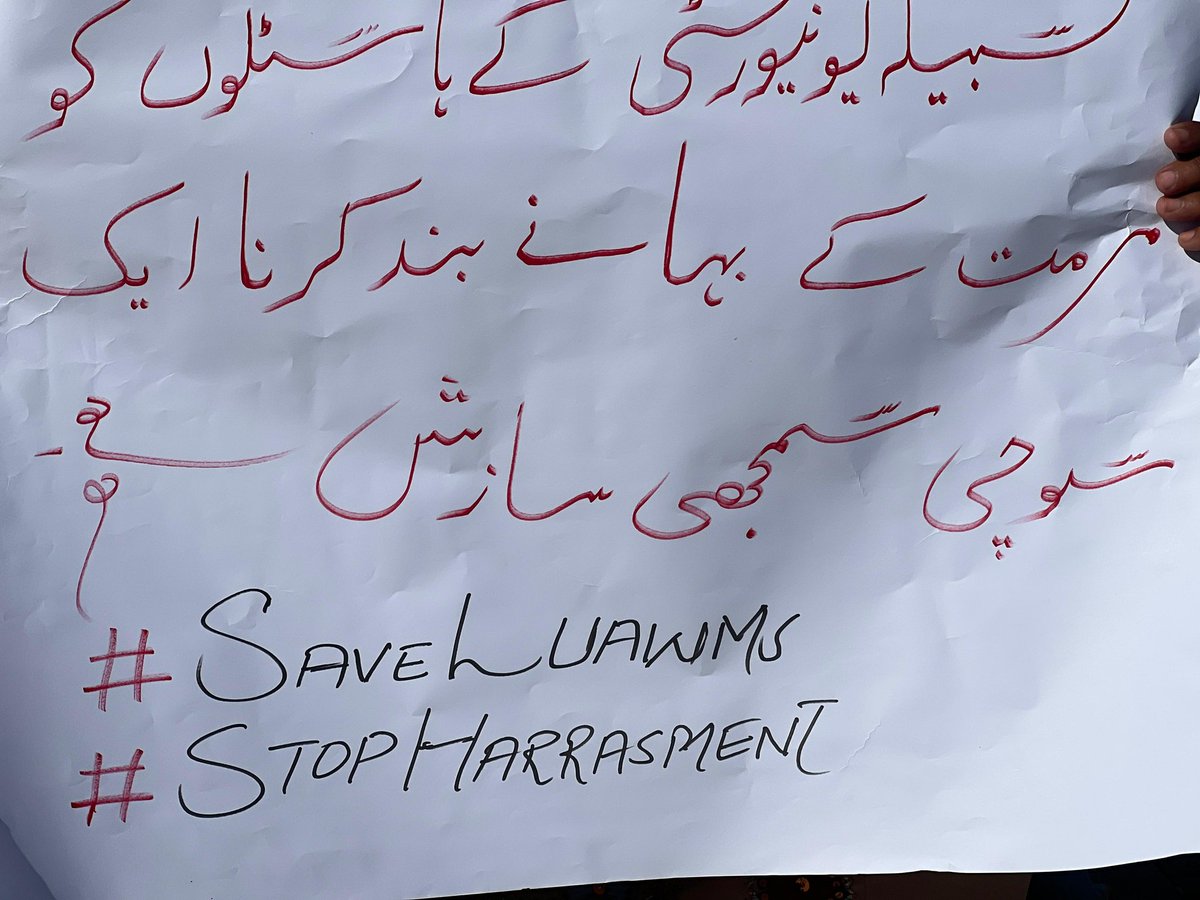 سبیلہ یونیورسٹی کے ہاسٹلوں کو
مرمت کے بہانے بند کرنا ایک
سوچی سمجھی سازش ہے۔
#SAVELUAWMS
#STOPHARRASMENT